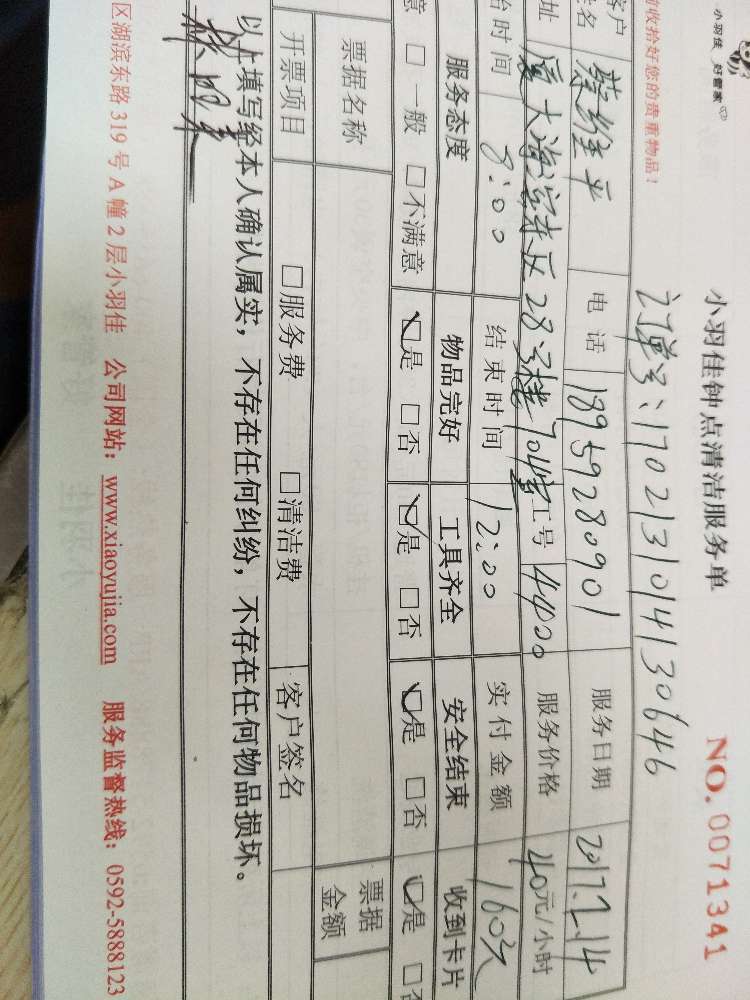 小羽佳 好管家
小羽佳钟点清洁服务单
NO.0071341
收拾好您的贵重物品！
订单号：170213104130646
客户
姓名 蔡维平 电话 18959280901 服务日期 2017.2.14
址 厦大海滨东区28号楼701室 工号 4400 服务价格 40元/小时
始时间 8:00 结束时间 12:00 实付金额 160次
服务态度 物品完好 工具齐全 安全结束 收到卡片
意 □ 一般 □不满意 ☑是 □否 ☑是 □否 ☑是 □否 ☑是 □否
票据名称 票据
金额
开票项目 □服务费 □清洁费 客户签名
以上填写经本人确认属实，不存在任何纠纷，不存在任何物品损坏。
区湖滨东路 319 号 A 幢 2 层小羽佳 公司网站：www.xiaoyujia.com 服务监督热线：0592-5888123